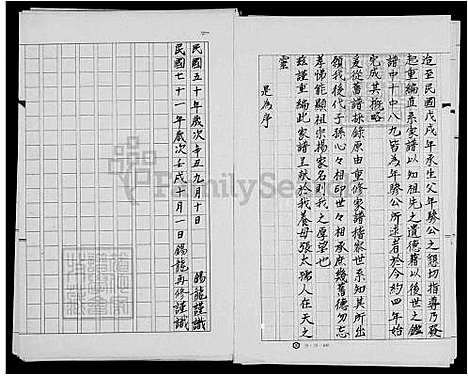 迨至民國戊戌年承生父年驂公之懇切指導乃發
起重編直系家譜以知祖先之遺德藉以後世之鑑
譜中十中八九皆為年驂公所述者於今約四年始
完成其概略
爰從舊譜採錄原由重修家譜稽察世系知其所出
領我後代子孫心々相印世々相承庶幾舊德勿忘
孝悌能顯祖宗揚家名則我之厚望也
茲謹重編此家譜呈獻於我養母張太孺人在天之
靈
是為序
民國五十年歲次辛丑九月十日 錫龍謹識
民國七十一年歲次壬戌十月一日錫龍再修謹識
FamilySearch